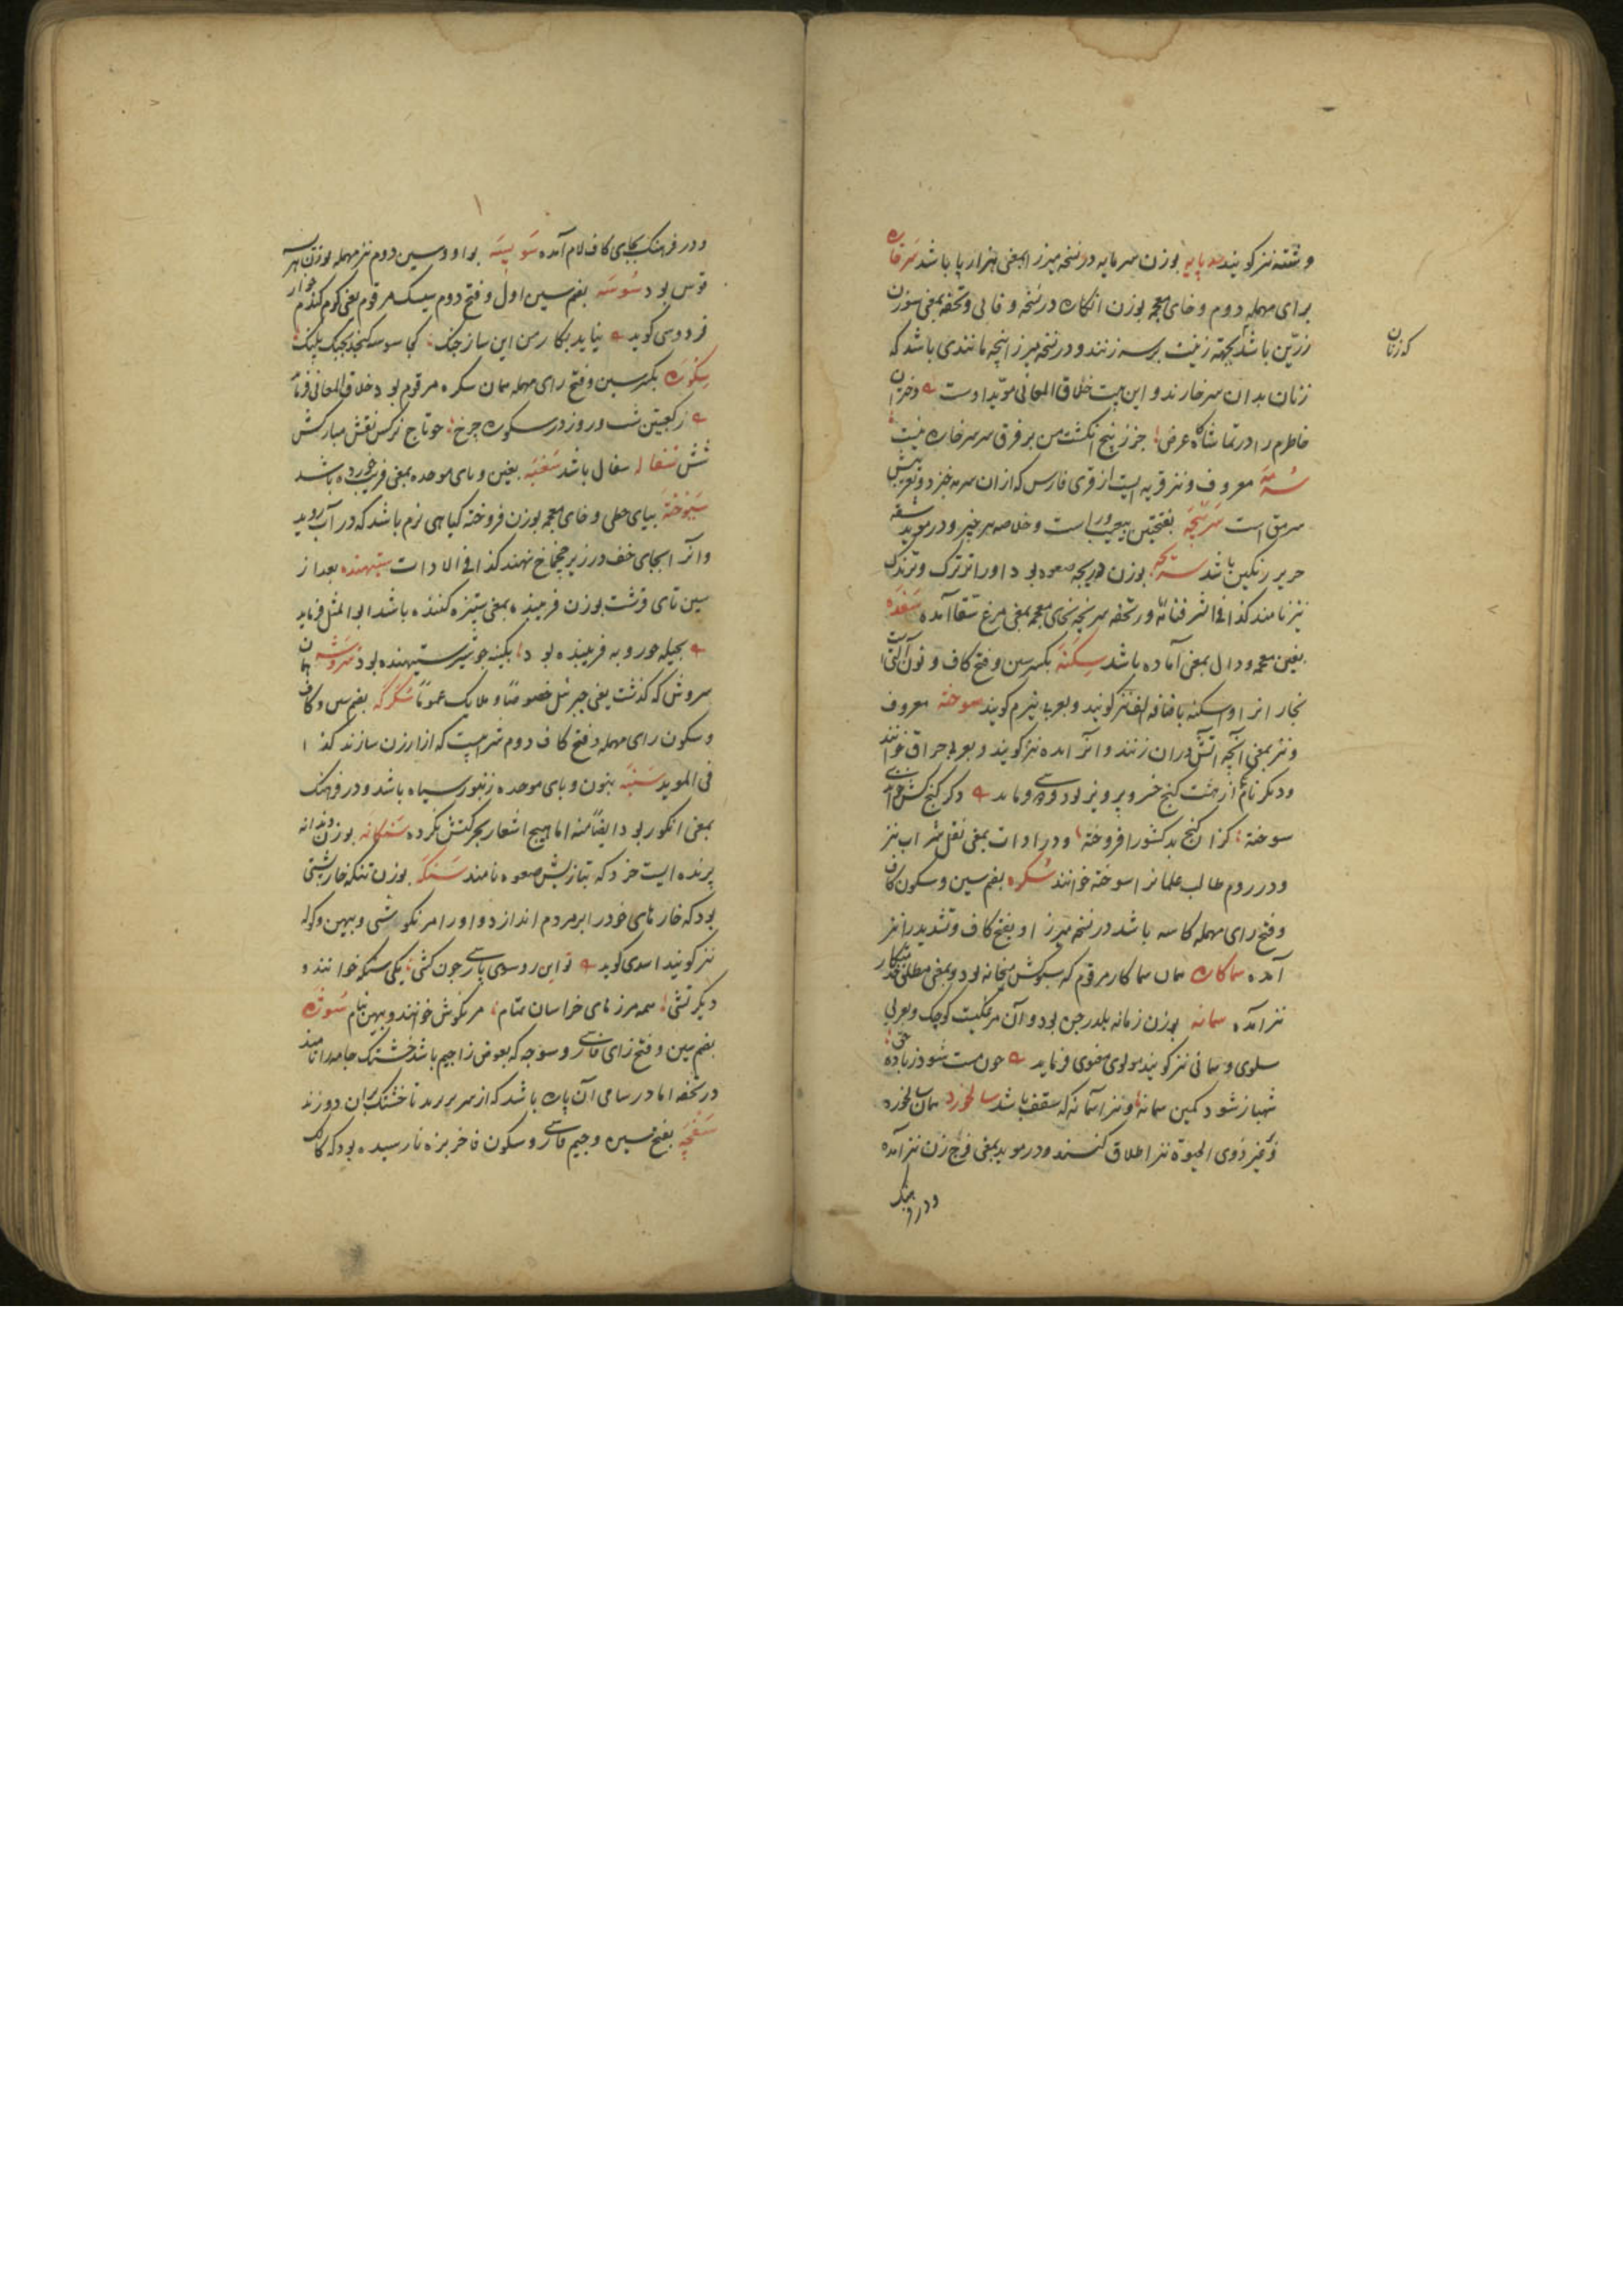 و شته نیز کویند صد پایه بوزن سرمایه در نسخه میرزا بمعنی هزارپا باشد سرخاره
برای مهمله دوم و خای معجمه بوزن انکاره در نسخه وفایی و تحفه بمعنی سوزن
زرین باشد که زنان بجهته زینت بر سر زنند و در نسخه میرزا پنجه مانندی باشد که
زنان بدان سر خارند و این بیت خلاق المعانی مؤید اوست دختران
خاطرم را در تماشاکاه عرض جز زپنج انکشت من بر فرق سر سرخاره نیست
سرمه معروف و نیز قریه ایست از قرای فارس که ازان سرمه خیزد و تعریبش
سرمق است سریچه بفتحتین و در موید شقه
حریر رنکین باشد سریچه بوزن دریچه صعوه بود و او را ترترک و ترندک
نیز نامند کذا فی الشرفنامه و در تحفه سرپچه بخای معجمه بمعنی مرغ سقا آمده سغده
بغین معجمه و دال بمعنی آماده باشد سکنه بکسر سین و فتح کاف و نون آلتیست
نجار انرا و اسکنه باضافه الف نیز کویند و بعربی بیرم کویند سوخته معروف
و نیز بمعنی آنچه آتش دران زنند و انرا آده نیز کویند و بعربی حراق خوانند
و دیکر نام از هشت کنج خسرو پرویز بود فردوسی فرماید دکر کنج کش خواندی
سوخته کزان کنج بد کشور افروخته و در ادات بمعنی نقل شراب نیز
و در روم طالب علمانرا سوخته خوانند سکره بضم سین و سکون کاف
و فتح رای مهمله کاسه باشد در نسخه میرزا و بفتح کاف و تشدید را نیز
آمده سماکاره همان سماکار مرقوم که سبوکش میخانه بود و بمعنی مطلق خدمتکار
نیز آمده سمانه بوزن زمانه بلدرجین بود و آن مرغکیست کوچک و بعربی
سلوی و سمانی نیز کویند مولوی معنوی فرماید چون مست شود ز باده حق
شهباز شود کمین سمانه و نیز آسمانه که سقف باشد سالخورده همان سالخورد
و غیر ذوی الحیوة نیز اطلاق کنند و در موید بمعنی فرج زن نیز آمده
و در فرهنک
که زنان
و در فرهنک بجای کاف لام آمده سویسه بواو و سین دوم نیز مهمله بوزن هریسه
قوس بود سوسه بضم سین اول و فتح دوم سیسک مرقوم یعنی کرم کندم خوار
فردوسی کوید نیاید بکار من این ساز جنک کجا سوسه کنجد بجنک پلنک
سکوره بکسر سین و فتح رای مهمله همان سکره مرقوم بود خلاق المعانی فرماید
ز کعبتین شب و روز در سکوره چرخ چو تاج نرکس نقش مبارکش
شش سفاله سفال باشد سغبه بغین و بای موحده بمعنی فریب خورده باشد
سیوخته بیای حطی و خای معجمه بوزن فروخته کیاهی نرم باشد که در آب روید
و آنرا بجای خف در زیر چخماخ نهند کذا فی الادات ستیهنده بعد از
سین تای قرشت بوزن فریبنده بمعنی ستیزه کننده باشد ابوالمثل فرماید
بحیله چو روبه فریبنده بود بکینه چو شیر ستیهنده بود سروشه همان
سروش که کذشت یعنی جبرئیل خصوصاً و ملایک عموماً سکرکه بضم سین و کاف
و سکون رای مهمله و فتح کاف دوم شرابیست که از ارزن سازند کذا
فی الموید سنبه بنون و بای موحده زنبور سیاه باشد و در فرهنک
بمعنی انکور بود ایضاً منه اما هیچ اشعار بحرکتش نکرده سنکانه بوزن دندانه
پرنده ایست خرد که بتازیش صعوه نامند سنکه بوزن تنکه خارپشتی
بود که خارهای خود را بر مردم اندازد و او را مرنکوشی و بیهن و کوله
نیز کویند اسدی کوید تو این روسی پارسی چون کشی یکی سنکه خوانند و
دیکر تشی همه مرزهای خراسان تمام مرنکوش خوانند و بیهن بنام سوژه
بضم سین و فتح زای فارسی و سوجه که بعوض زا جیم باشد خشتک جامه را نامند
در تحفه اما در سامی آن پاره باشد که از سر برند تا خشتک بران دوزند
سفچه بفتح سین و جیم فارسی و سکون فا خربزه نارسیده بود که کالک